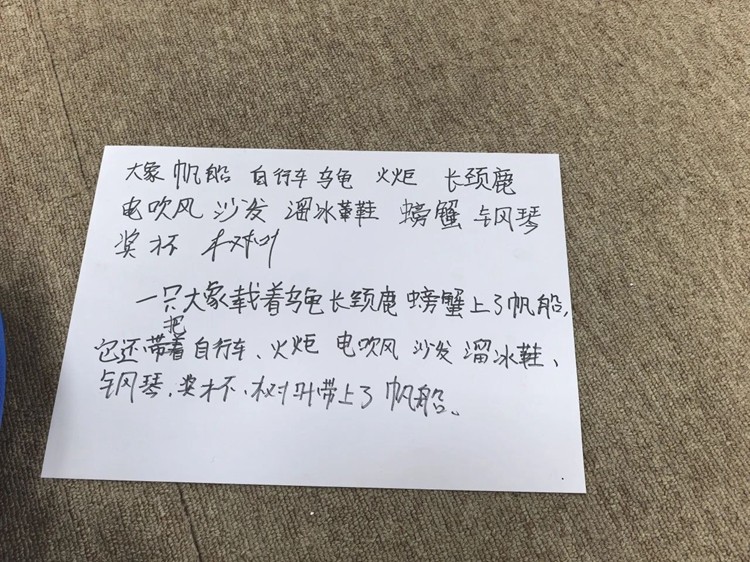 大象 帆船 自行车 乌龟 火炬 长颈鹿
电吹风 沙发 溜冰鞋 螃蟹 钢琴
奖杯 树叶
一只大象载着乌龟长颈鹿 螃蟹上了帆船,
它还把带着自行车、火炬 电吹风 沙发 溜冰鞋、
钢琴、奖杯、树叶带上了帆船。